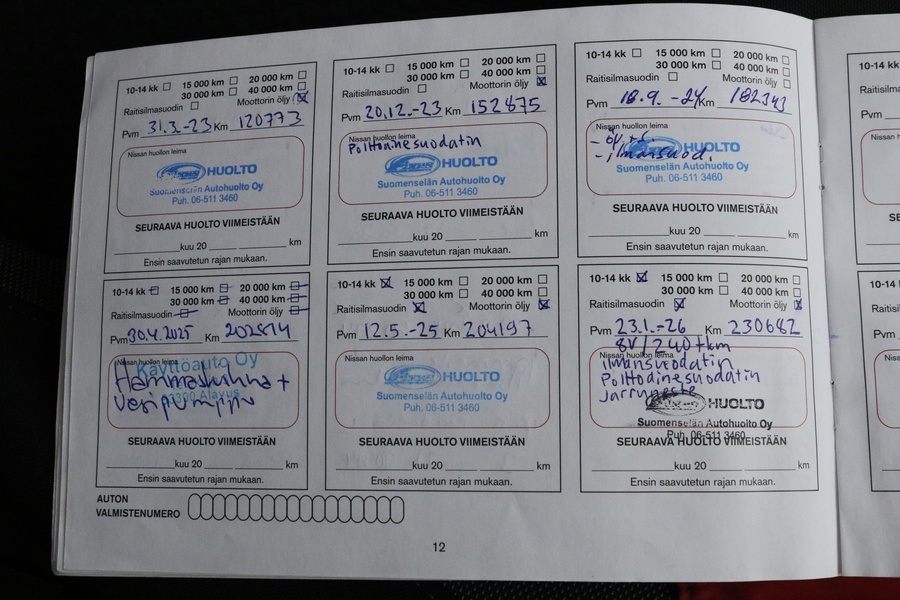 10-14 kk 15 000 km 20 000 km
30 000 km 40 000 km
Raitisilmasuodin Moottorin öljy
Pvm 31.3.-23 Km 120773
Nissan huollon leima
HUOLTO
Suomenselän Autohuolto Oy
Puh. 06-511 3460
SEURAAVA HUOLTO VIIMEISTÄÄN
kuu 20 km
Ensin saavutetun rajan mukaan.
10-14 kk 15 000 km 20 000 km
30 000 km 40 000 km
Raitisilmasuodin Moottorin öljy
Pvm 20.12.-23 Km 152875
Nissan huollon leima
Polttoainesuodatin
HUOLTO
Suomenselän Autohuolto Oy
Puh. 06-511 3460
SEURAAVA HUOLTO VIIMEISTÄÄN
kuu 20 km
Ensin saavutetun rajan mukaan.
10-14 kk 15 000 km 20 000 km
30 000 km 40 000 km
Raitisilmasuodin Moottorin öljy
Pvm 18.9.-24 Km 182343
Nissan huollon leima
- ilmansuod.
HUOLTO
Suomenselän Autohuolto Oy
Puh. 06-511 3460
SEURAAVA HUOLTO VIIMEISTÄÄN
kuu 20 km
Ensin saavutetun rajan mukaan.
10-14 kk 15 000 km 20 000 km
30 000 km 40 000 km
Raitisilmasuodin Moottorin öljy
Pvm 30.4.2025 Km
Nissan huollon leima
Käyttöauto Oy
Hammashihna +
63300 Alavus
Vesipumppu
SEURAAVA HUOLTO VIIMEISTÄÄN
kuu 20 km
Ensin saavutetun rajan mukaan.
10-14 kk 15 000 km 20 000 km
30 000 km 40 000 km
Raitisilmasuodin Moottorin öljy
Pvm 12.5.-25 Km 204197
Nissan huollon leima
HUOLTO
Suomenselän Autohuolto Oy
Puh. 06-511 3460
SEURAAVA HUOLTO VIIMEISTÄÄN
kuu 20 km
Ensin saavutetun rajan mukaan.
10-14 kk 15 000 km 20 000 km
30 000 km 40 000 km
Raitisilmasuodin Moottorin öljy
Pvm 23.1.-26 Km 230682
8V/240tkm
Nissan huollon leima
ilmansuodatin
Polttoainesuodatin
Jarruneste
HUOLTO
Suomenselän Autohuolto Oy
Puh. 06-511 3460
SEURAAVA HUOLTO VIIMEISTÄÄN
kuu 20 km
Ensin saavutetun rajan mukaan.
AUTON
VALMISTENUMERO
12
10-14 k
Raitisilma
Pvm
Nissan h
SE
10-14
Raitisilm
Pvm
Nissan
S